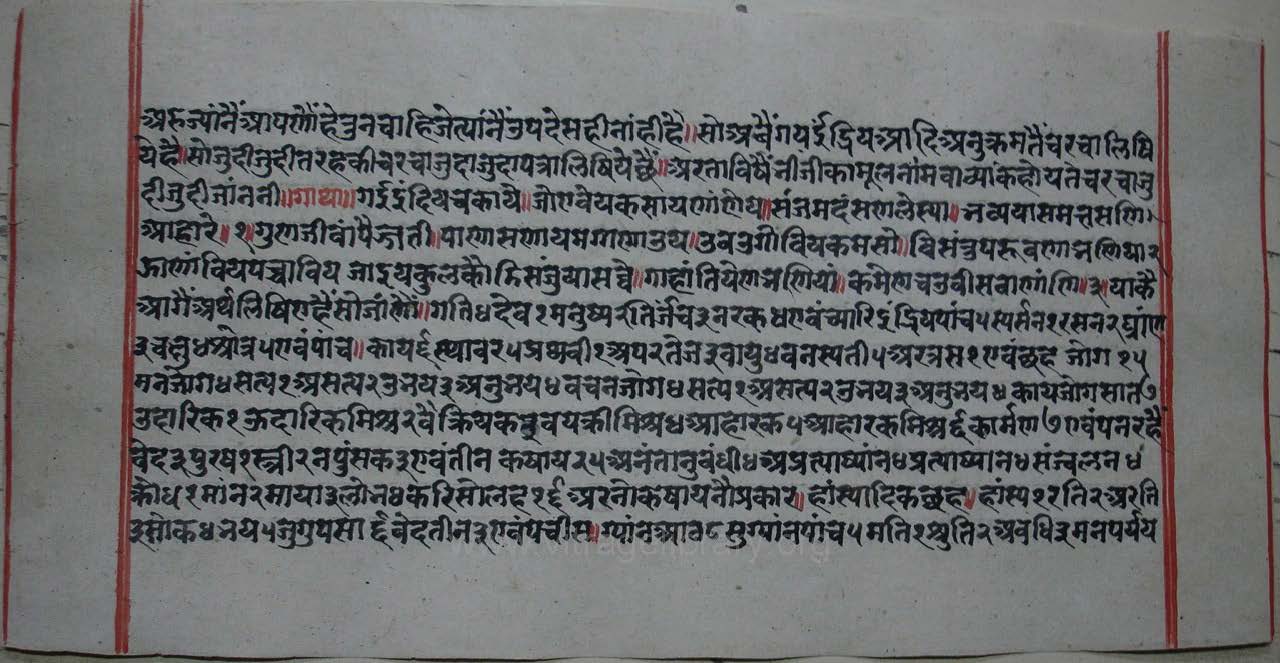 अरुज्यांनैं आपणौं हेतु न चाहिजे त्यांनैं उपदेस ही नांही है॥ सो अबैं गय इंद्रिय आदि अनुक्रमतैं चरचा लिषि
ये है॥ सो जुदी जुदी तरह की चरचा जुदा जुदा पत्रा लिषिये छैं॥ अर ता विषैं नीजीका मूल नांम वा आंक होय तं चरचा जु
दी जुदी जांननी॥ गाथा॥ गइ इंदिय च काये॥ जोए वेय कसाय णांणे य॥ संजम दंसण लेस्या॥ भव्वया समत्त सण्णि
आहारे॥१॥ गुण जीवा पैज्जती॥ पाणा सण्णा य मगणाण उय॥ उवउगो विय कमसो॥ विसंतु परूवणा भणिया २
झाणं विय पंचाविय जाइ य कुल को डिसंजुया सव्वे॥ गाहां तियेण भणियां॥ कमेण चउवीस वाणंणि॥३॥ याकै
आगैं अर्थ लिषिए हैं सो जांणौं॥ गति ४ देव १ मनुष्य २ तिर्जंच ३ नरक ४ एवं च्यारि इंद्रिय पांच ५ स्पर्सन १ रसन २ घ्रांण
३ चक्षु ४ श्रोत्र ५ एवं पांच॥ काय ६ स्थावर ५ प्रथ्वी १ अप २ तेज ३ वायु ४ वनस्पती ५ अर त्रस १ एवं छह जोग १५
मनजोग ४ सत्य १ असत्य २ उभय ३ अनुभय ४ वचनजोग ४ सत्य १ असत्य २ उभय ३ अनुभय ४ कायजोग सात ७
उदारिक १ ऊदारिकमिश्र २ वैक्रियक ३ वयक्रीमिश्र ४ आहारक ५ आहारकमिश्र ६ कार्मण ७ एवं पनरह हैं
वेद ३ पुरष १ स्त्री २ नपुंसक ३ एवं तीन कषाय २५ अनंतानुबंधी ४ अप्रत्याष्यांन ४ प्रत्याष्यान ४ संज्वलन ४
क्रोध १ मांन २ माया ३ लोभ ४ करि सोलह १६ अर नोकषाय नौ प्रकार॥ हांस्यादिक छह॥ हांस्य १ रति २ अरति
३ सोक ४ भय ५ जुगुपसा ६ वेद तीन ३ एवं पचीस॥ ग्यांन आठ ८ सुग्यांन पांच ५ मति १ श्रुति २ अवधि ३ मनपर्यय
www.vitragelibrary.org